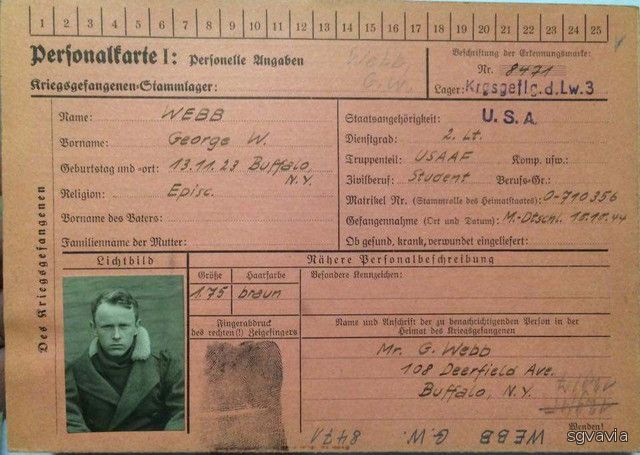 1 2 3 4 5 6 7 8 9 10 11 12 13 14 15 16 17 18 19 20 21 22 23 24 25
Personalkarte I: Personelle Angaben
Kriegsgefangenen-Stammlager:
Webb
G.W.
Beschriftung der Erkennungsmarke:
Nr. 8471
Lager: Krgsgeflg.d.Lw.3
Des Kriegsgefangenen
Name: WEBB
Vorname: George W.
Geburtstag und -ort: 13.11.23 Buffalo,
N.Y.
Religion: Episc.
Vorname des Vaters:
Familienname der Mutter:
Staatsangehörigkeit: U.S.A.
Dienstgrad: 2. Lt.
Truppenteil: USAAF Komp. usw.:
Zivilberuf: Student Berufs-Gr.:
Matrikel Nr. (Stammrolle des Heimatstaates): O-710356
Gefangennahme (Ort und Datum): M.-Dtschl. 15.10.44
Ob gesund, krank, verwundet eingeliefert:
Lichtbild
Nähere Personalbeschreibung
Größe Haarfarbe
1.75 braun
Besondere Kennzeichen:
Fingerabdruck
des rechten (!) Zeigefingers
Name und Anschrift der zu benachrichtigenden Person in der
Heimat des Kriegsgefangenen
Mr. G. Webb
108 Deerfield Ave.
Buffalo, N.Y.
Wenden!
WEBB G.W. 8471
sgvavia